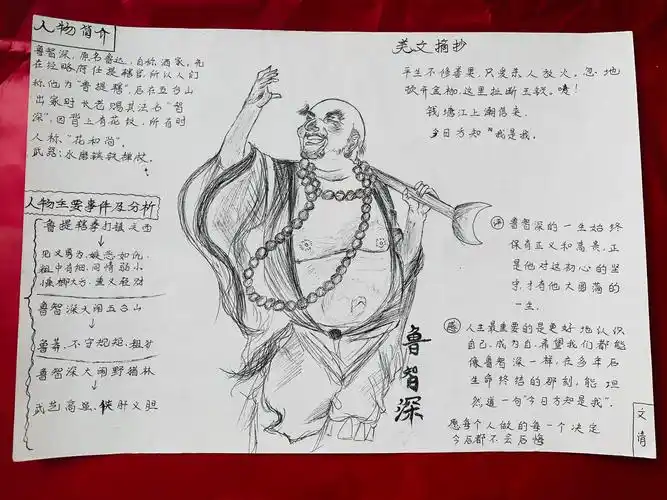 人物简介
鲁智深，原名鲁达，自称洒家，先
在经略府任提辖官，所以人们
称他为“鲁提辖”，后在五台山
出家时长老赐其法名“智
深”，因背上有花纹，所有时
人称，“花和尚”。
武器：水磨镔铁禅杖。
人物主要事件及分析
鲁提辖拳打镇关西
↓
见义勇为，嫉恶如仇，
粗中有细，同情弱小
慷慨大方、重义轻财
鲁智深大闹五台山
↓
鲁莽、不守规矩、粗犷
鲁智深大闹野猪林
↓
武艺高强、侠肝义胆
美文摘抄
平生不修善果，只爱杀人放火。忽地
顿开金枷，这里扯断玉锁。咦！
钱塘江上潮信来，
今日方知“我是我。
评 鲁智深的一生始终
保有正义和高贵，正
是他对这初心的坚
守，才有他大圆满的
一生。
感 人生最重要的是更好地认识
自己，成为自，希望我们都能
像鲁智深一样，在多年后
生命终结的那刻，能坦
然道一句“今日方知是我”。
愿每个人做的每一个决定
今后都不会后悔
鲁智深
文清